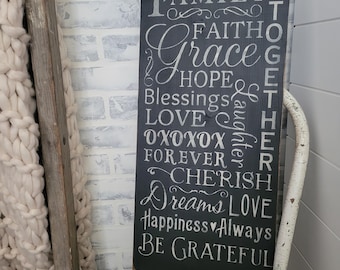 FAMILY
FAITH
Grace
HOPE
Blessings
LOVE
Laughter
TOGETHER
OXOXOX
FOREVER
CHERISH
Dreams LOVE
Happiness ♥ Always
BE GRATEFUL